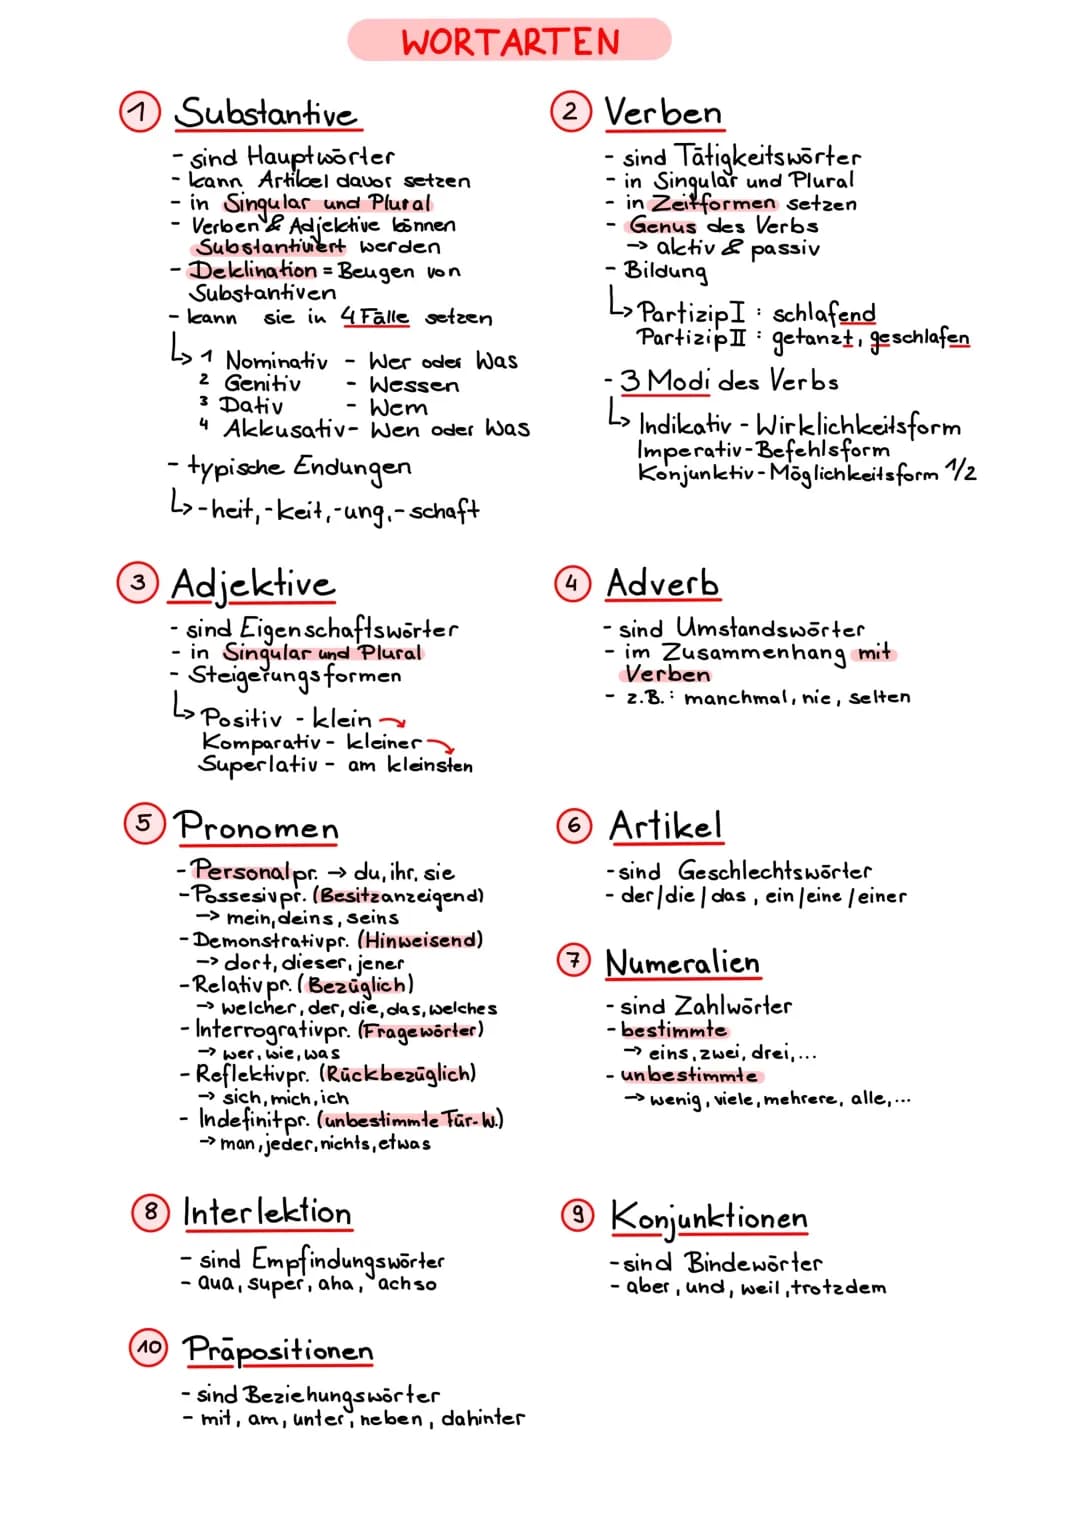 WORTARTEN
1 Substantive
- sind Hauptwörter
- kann Artikel davor setzen
- in Singular und Plural
- Verben & Adjektive können
Substantiviert werden
- Deklination = Beugen von
Substantiven
- kann sie in 4 Fälle setzen
↳ 1 Nominativ - Wer oder Was
2 Genitiv - Wessen
3 Dativ - Wem
4 Akkusativ - Wen oder Was
- typische Endungen
↳ -heit, -keit, -ung, -schaft
2 Verben
- sind Tätigkeitswörter
- in Singular und Plural
- in Zeitformen setzen
- Genus des Verbs
→ aktiv & passiv
- Bildung
↳ Partizip I : schlafend
Partizip II : getanzt, geschlafen
- 3 Modi des Verbs
↳ Indikativ - Wirklichkeitsform
Imperativ - Befehlsform
Konjunktiv - Möglichkeitsform 1/2
3 Adjektive
- sind Eigenschaftswörter
- in Singular und Plural
- Steigerungsformen
↳ Positiv - klein
Komparativ - kleiner
Superlativ - am kleinsten
4 Adverb
- sind Umstandswörter
- im Zusammenhang mit
Verben
- z.B.: manchmal, nie, selten
5 Pronomen
- Personalpr. → du, ihr, sie
- Possesivpr. (Besitzanzeigend)
→ mein, deins, seins
- Demonstrativpr. (Hinweisend)
→ dort, dieser, jener
- Relativpr. (Bezüglich)
→ welcher, der, die, das, welches
- Interrogrativpr. (Fragewörter)
→ wer, wie, was
- Reflektivpr. (Rückbezüglich)
→ sich, mich, ich
- Indefinitpr. (unbestimmte Für-W.)
→ man, jeder, nichts, etwas
6 Artikel
- sind Geschlechtswörter
- der / die / das, ein / eine / einer
7 Numeralien
- sind Zahlwörter
- bestimmte
→ eins, zwei, drei, ...
- unbestimmte
→ wenig, viele, mehrere, alle, ...
8 Interlektion
- sind Empfindungswörter
- aua, super, aha, achso
9 Konjunktionen
- sind Bindewörter
- aber, und, weil, trotzdem
10 Präpositionen
- sind Beziehungswörter
- mit, am, unter, neben, dahinter